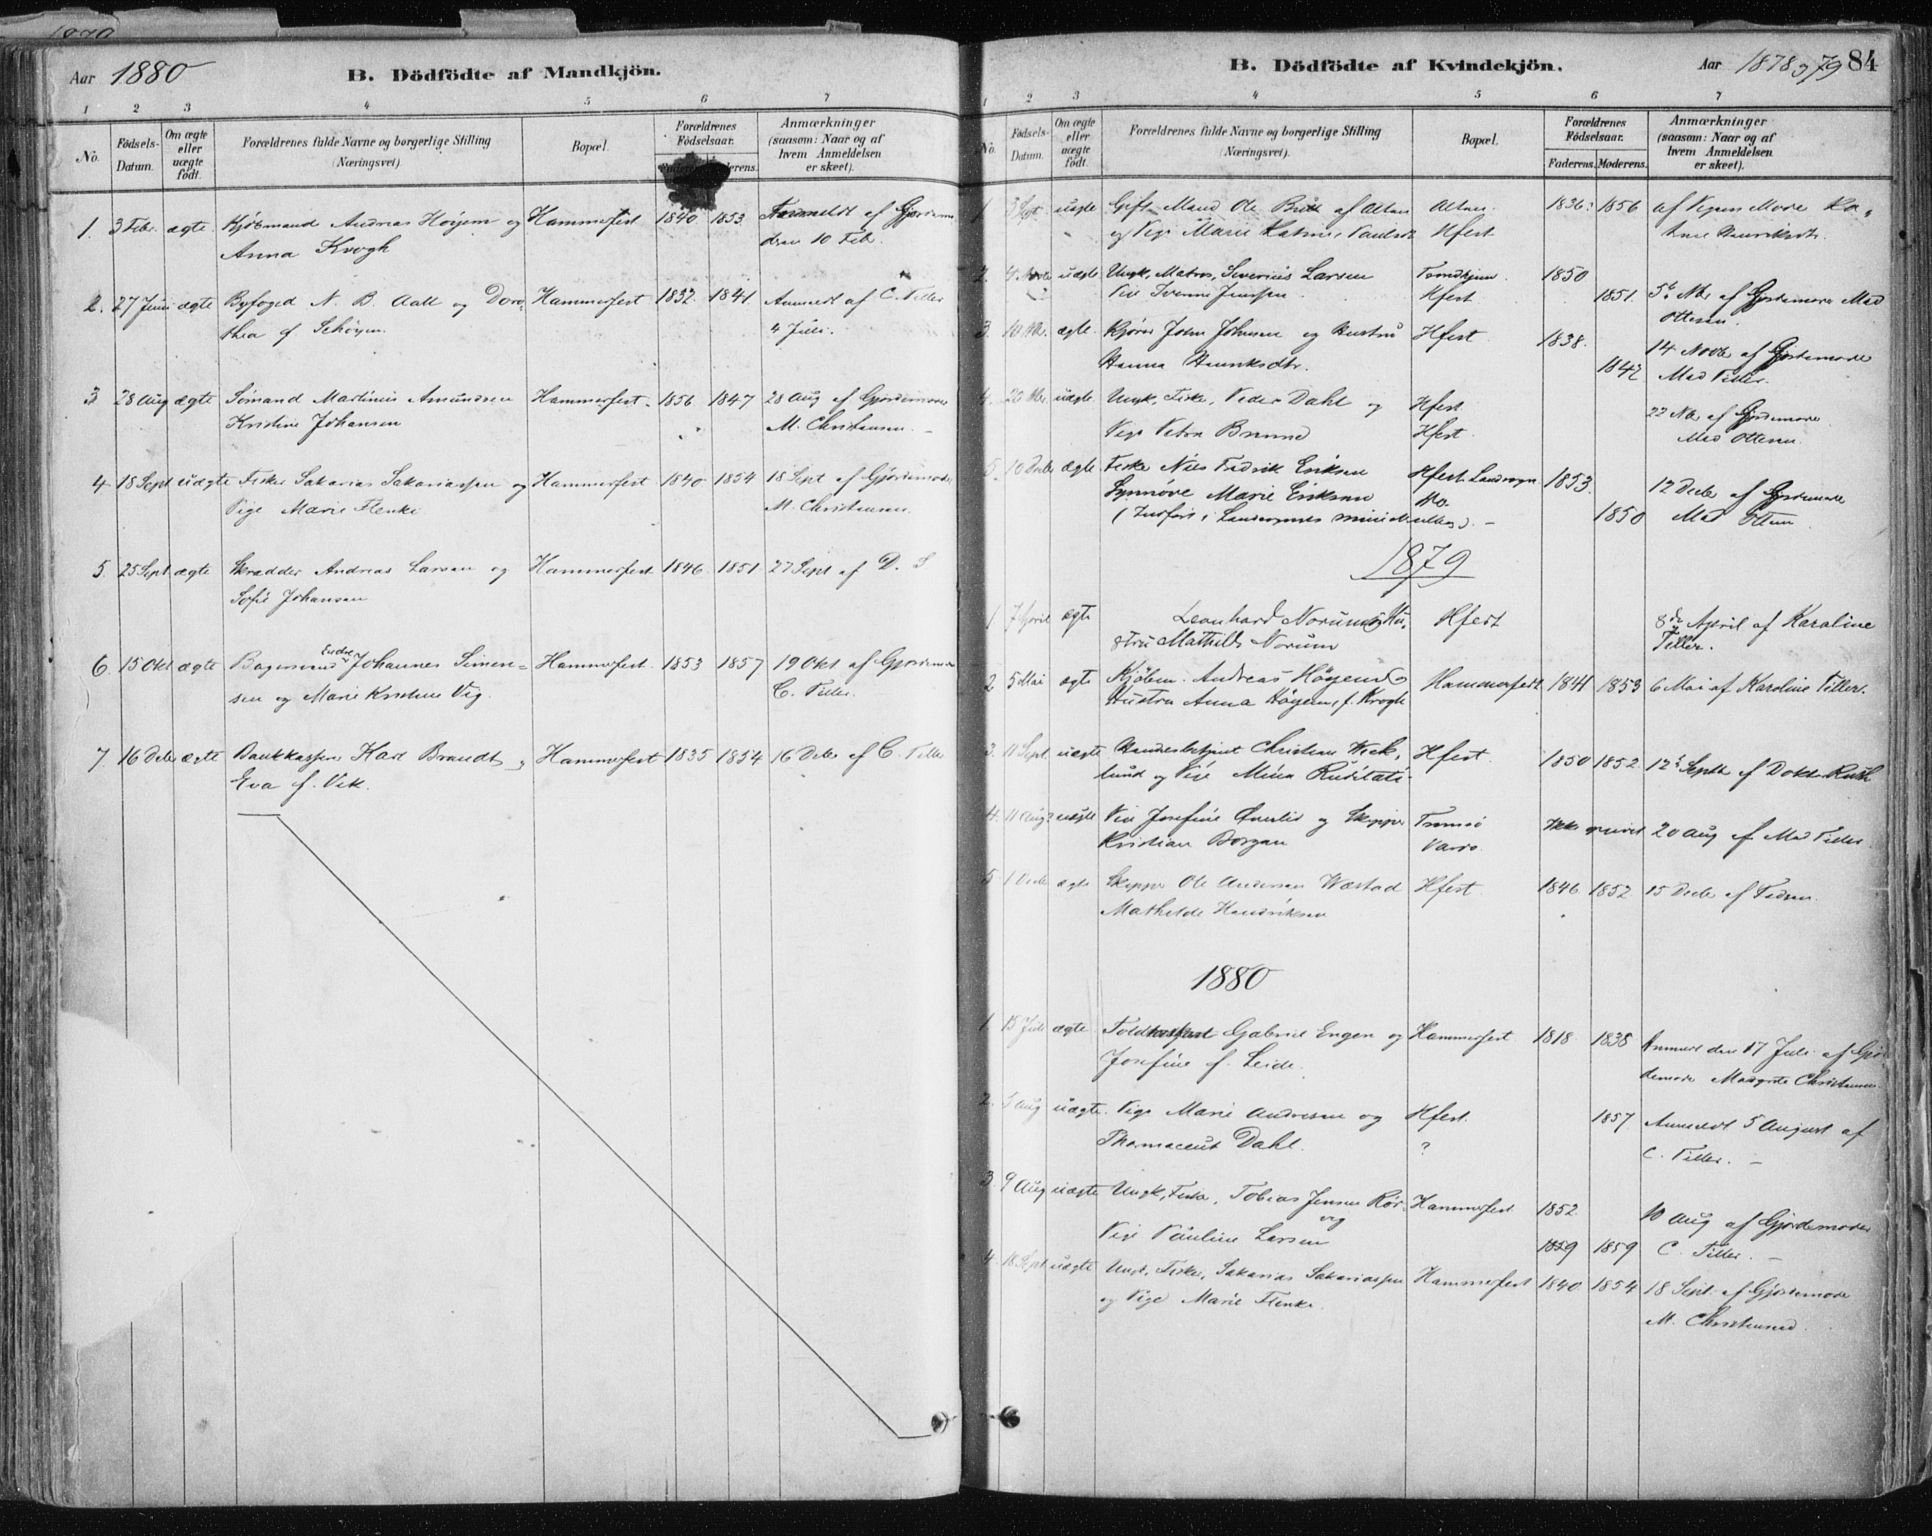 Aar 1880 B. Dödfödte af Mandkjön.
1 2 3 4 5 6 7
No. Födsels-Datum. Om ægte eller uægte födt. Forældrenes fulde Navne og borgerlige Stilling (Næringsvei). Bopæl. Forældrenes Födselsaar. Faderens. Moderens. Anmærkninger (saasom: Naar og af hvem Anmeldelsen er skeet).
1. 3 Feb. ægte. Kjöbmand Andreas Höyem og Hammerfest 1840 1853 Anmeldt af Gjordemo
Anna Krogh deren 10 Feb.
2. 27 Juni ægte Byfoged N. B. Aall og Doro, Hammerfest 1832 1841 Anmeldt af C. Tiller
thea f Schöyen 4 Juli.
3 28 Aug ægte Sömand Martinus Amundsen Hammerfest. 1856 1847 28 Aug af Gjordemoder
Kristine Johansen M. Christensen
4 18 Sept uægte Fisker Sakarias Sakariassen og Hammerfest 1840 1854 18 Sept af Gjordemoder
Pige Marie Flenke M. Christensen
5. 25 Sept ægte Skrædder Andreas Larsen og Hammerfest 1846. 1851 27 Sept af D. S
Sofie Johansen
6. 15 Okt ægte Johannes Simen- Hammerfest. 1853 1857 19 Okt af Gjordemo
sen og Marie Kristine Vig. C. Tiller.
7. 16 Debr ægte Bankkasser Karl Brandt, Hammerfest 1835 1854 16 Debr af C. Tiller
Eva f. Vik.
B. Dödfödte af Kvindekjön. Aar 1878 og 79 84
1 2 3 4 5 6 7
No. Födsels-Datum. Om ægte eller uægte födt. Forældrenes fulde Navne og borgerlige Stilling (Næringsvei). Bopæl. Forældrenes Födselsaar. Faderens. Moderens. Anmærkninger (saasom: Naar og af hvem Anmeldelsen er skeet).
1 3 Sept uægte Gift Mand Ole af Alten Alten 1836: 1856 af Pigens Moder Ka,
og Pige Marie Hfest Henriksdtr.
2. uægte Ungk, Matros, Severius Larsen Trondhjem 1850
Pige Jensen Hfest 1851. 5te Nbr af Gjordemoder Mad Ottesen.
3. ægte Kjörer Johnsen og Hustru Hfest 1838.
Hanna Henriksdtr. 1842 14 Novbr af Gjordemoder Mad Tiller.
4. uægte Ungk, Fisker, Peder Dahl og Hfest
Pige Petra Hfest. 22 Nbr af Gjordemoder Mad Ottesen
5. 10 Decbr ægte Fisker Nils Fredrik Eriksen Hfest Landsogn 1853.
Synnöve Marie Eriksen 1850 12 Decbr af Gjordemoder Mad Ottesen
1879
1 7 April ægte Leonhard Norum og Hu, Hfest 8de April af Karoline
stru Mathilde Norum Tiller.
2 5 Mai ægte Kjöbm. Andreas Höyem og Hammerfest 1841 1853 6 Mai af Karoline Tiller.
Hustru Anna Höyem, f. Krogh
3. 11 Sept uægte Handelsbetjent Christian Wick, Hfest. 1850 1852 12te Septbr af Doktor
lund og Pige Mina
4. 11 Aug uægte Pige Josefine og Skipper Tromsö Ikke opgivet 20 Aug af Mad Tiller
Kristian
5. 1 Decbr ægte Skipper Ole Andersen Hfest 1846. 1852 15 Decbr af
Mathilde Hendriksen
1880
1. 15 Juli ægte. Gabriel Engen og Hammerfest 1818 1838 Anmeldt den 17 Juli af Gjor
Josefine f. Leide. demoder Margrete Christensen
2. 5 Aug uægte. Pige Marie Andresen og Hfest. 1857 Anmeldt 5 August af
Pharmaceut Dahl. ? C. Tiller. -
3. 9 Aug uægte Ungk, Fisker, Tobias Jensen Rör- Hammerfest 1852 10 Aug af Gjordemoder
vig
Pige Pauline Larsen 1859 1859 C. Tiller. -
4. 18 Sept uægte Ungk, Fisker, Sakarias Sakariassen Hammerfest 1840 1854 18 Sept. af Gjordemoder
og Pige Marie Flenke. M. Christensen.